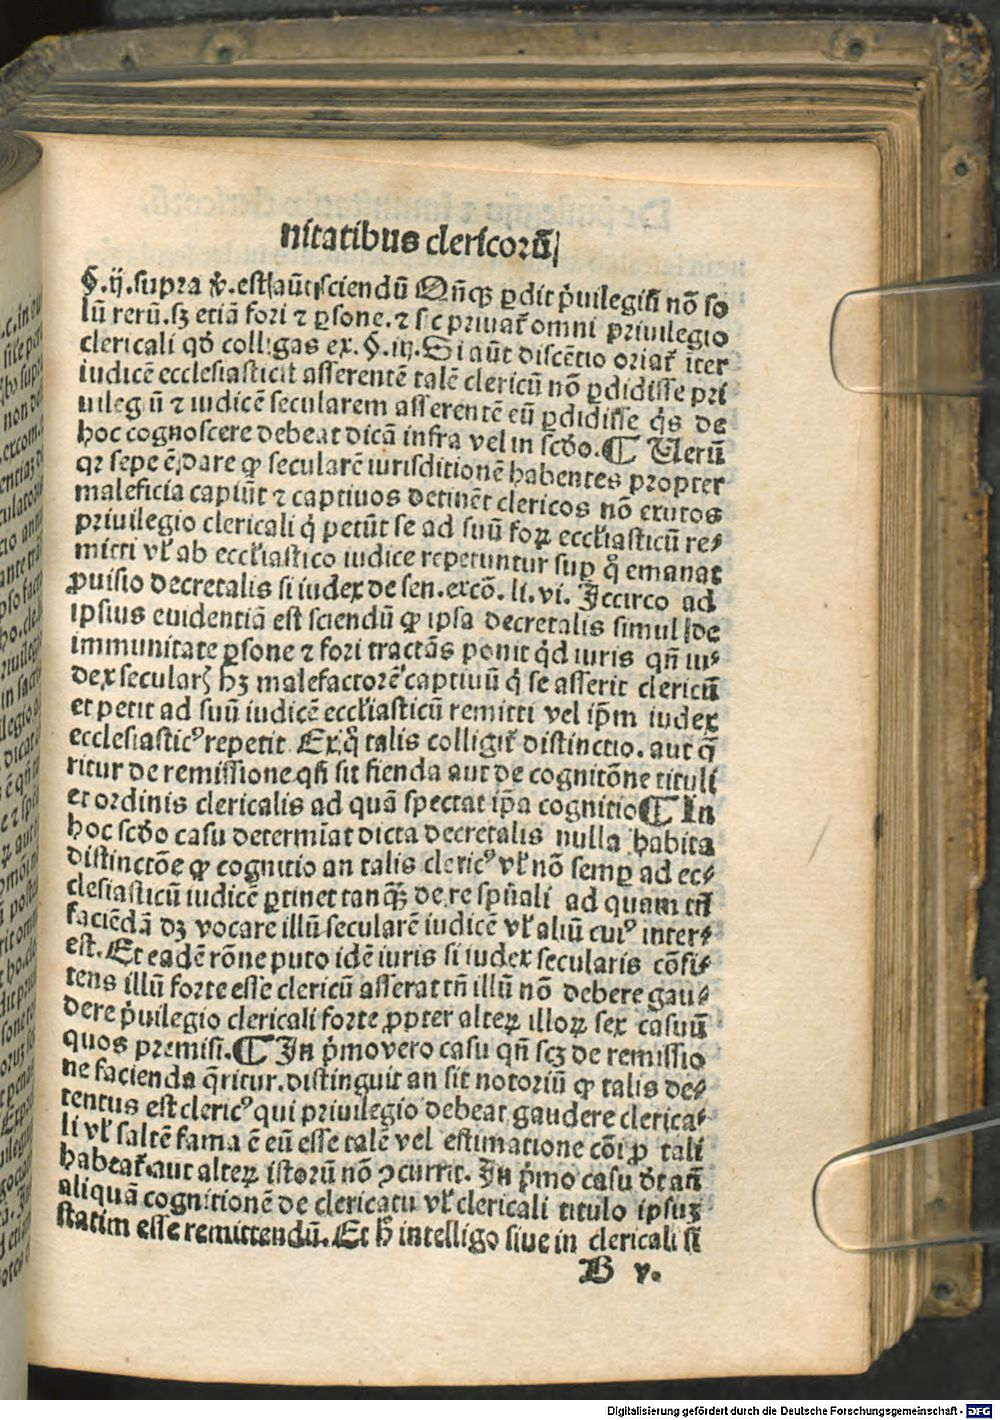 nitatibus clericorū
§.ij.supra ꝟ.est aūt sciendū Qn̄qꝫ ꝑdit p̄uilegiū nō so
lū rerū.sꝫ etiā fori ⁊ ꝑsone.⁊ sic priuat᷑ omni priuilegio
clericali qd̓ colligas ex.§.iij.Si aūt discētio oriat᷑ iter
iudicē ecclesiasticū asserentē talē clericū nō ꝑdidisse pri
uileg ū ⁊ iudicē secularem asserentē eū ꝑdidisse q̓s de
hoc cognoscere debeat dicā infra vel in scd̓o.¶ Uerū
qꝛ sepe ē dare ꝙ secularē iurisditionē habentes propter
maleficia capiūt ⁊ captiuos detinēt clericos nō exutos
priuilegio clericali q̓ petūt se ad suū foꝝ eccl̓iasticū re⸗
mitti vl̓ ab eccl̓iastico iudice repetuntur suꝑ q̊ emanat
ꝓuisio decretalis si iudex de sen.excō.li.vi. Iccirco ad
ipsius euidentiā est sciendū ꝙ ipsa decretalis simul de
immunitate ꝑsone ⁊ fori tractās ponit q̓d iuris qn̄ iu⸗
dex secularꝭ hꝫ malefactorē captiuū q̓ se asserit clericū
et petit ad suū iudicē eccl̓iasticū remitti vel ip̄m iudex
ecclesiasticꝰ repetit. Ex q̊ talis colligit᷑ distinctio.aut q̄
ritur de remissione qn̄ sit fienda aut de cognitōne tituli
et ordinis clericalis ad quā spectat ip̄a cognitio ¶ In
hoc scd̓o casu determīat dicta decretalis nulla habita
distinctōe ꝙ cognitio an talis clericꝰ vl̓ nō semꝑ ad ec⸗
clesiasticū iudicē ꝑtinet tanqꝫ̄ de re spūali ad quam tn̄
faciēdā dꝫ vocare illū secularē iudicē vl̓ aliū cuiꝰ inter⸗
est.Et eadē rōne puto idē iuris si iudex secularis cōfi⸗
tens illū forte esse clericū asserat tn̄ illū nō debere gau⸗
dere p̄uilegio clericali forte ꝓpter alteꝝ illoꝝ sex casuū
quos premisi.¶ In p̄mo vero casu qn̄ scꝫ de remissio
ne facienda q̄ritur.distinguit an sit notoriū ꝙ talis de⸗
tentus est clericꝰ qui priuilegio debeat gaudere clerica⸗
li vl̓ saltē fama ē eū esse talē vel estimatione cōi ꝓ tali
habeat᷑.aut alteꝝ istorū nō ꝯcurrit. In p̄mo casu dt̓ an̄
aliquā cognitionē de clericatu vl̓ clericali titulo ipsuꝫ
statim esse remittendū.Et h̓ intelligo siue in clericali si
B v.
Digitalisierung gefördert durch die Deutsche Forschungsgemeinschaft - DFG